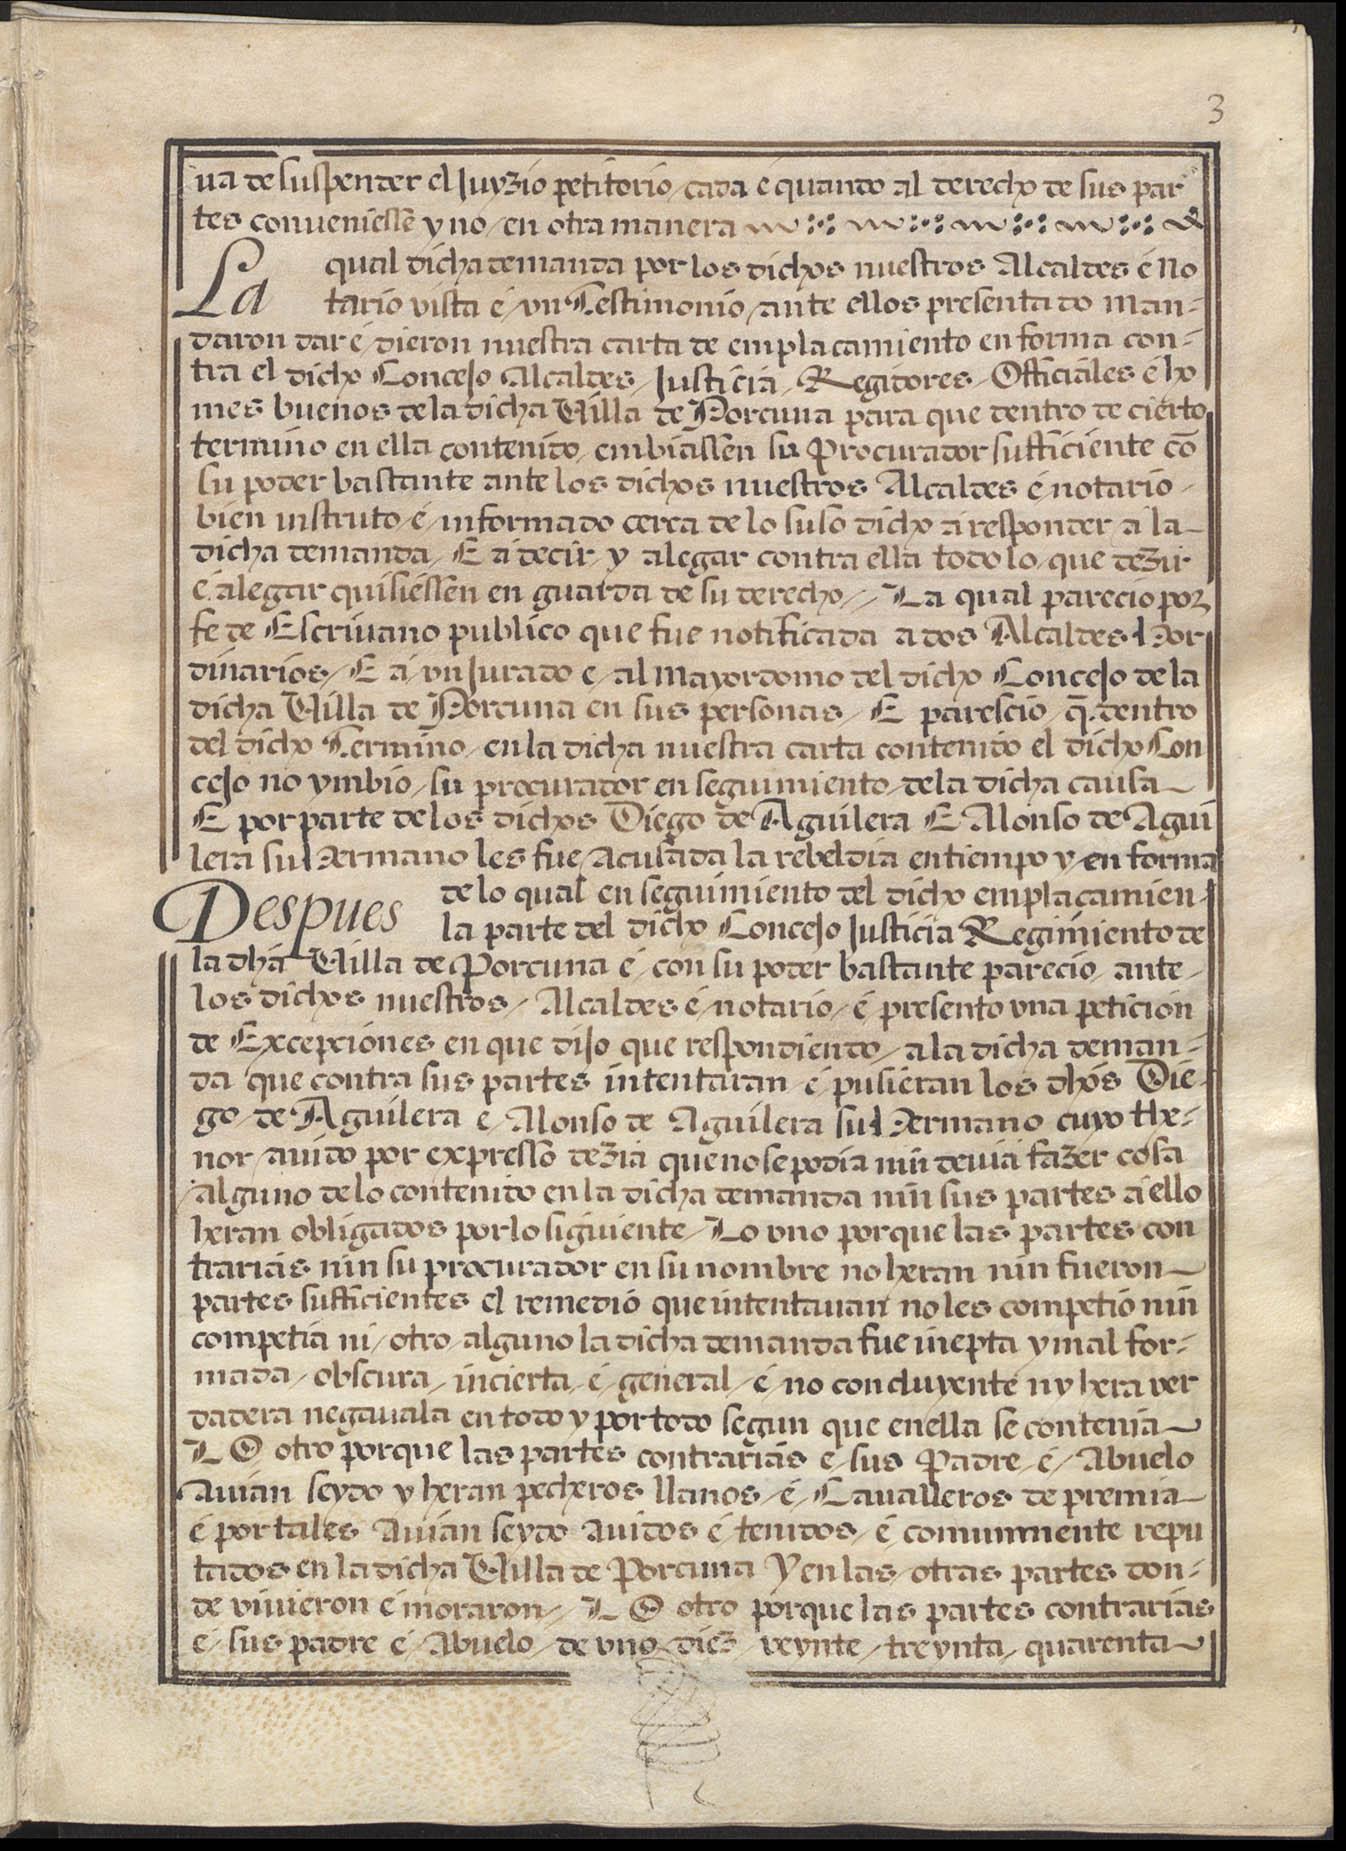 3
ua de suspender el Juyzio petitorio / cada é quando al derecho de sus par
tes conueniesse y no / en otra manera
La qual dicha demanda por los dichos nuestros Alcaldes é No
tario vista é / vn Testimonio / ante ellos presentado man-
daron dar é / dieron nuestra carta de emplacamiento en forma con-
tra el dicho Concejo Alcaldes / Justicia / Regidores / Officiales é ho
mes buenos de la dicha Uilla de Porcuna para que dentro de cierto
termino en ella contenido / embiassen su Procurador sufficiente cõ
su poder bastante ante los dichos nuestros Alcaldes é notario /
bien instruto é / informado cerca de lo suso dicho á responder á la
dicha demanda / E á decir / y alegar contra ella todo lo / que dezir
é / alegar quisiessen en guarda de su derecho // La qual parecio por
fe de Escriuano publico que fue notificada a dos Alcaldes Hor
dinarios / E á / vn Jurado e / al Mayordomo del dicho Concejo de la
dicha Uilla de Porcuna en sus personas / E parescio / q̃ dentro
del dicho Termino / en la dicha nuestra carta contenido el dicho Con
cejo no ymbio / su procurador en seguimiento / de la dicha causa
E por parte de los dichos Diego de Aguilera E Alonso de Agui
lera su Hermano les fue / acusada la rebeldia en tiempo y en forma
Despues de lo qual en seguimiento del dicho emplacamien-
la parte del dicho Concejo Justicia Regimiento de
la dhá Uilla de Porcuna é / con su poder bastante parecio / ante /
los dichos nuestros / Alcaldes é / notario / é presento vna peticion
de Excepciones en que dijo que respondiendo / a la dicha deman-
da que contra sus partes intentaran / é pusieran los dhos Die-
go / de Aguilera e / Alonso de Aguilera su Hermano cuyo the-
nor / auido por expresso dezia que no se podia nin deuia fazer cosa
alguno de lo contenido en la dicha demanda nin sus partes á ello
heran obligados por lo siguiente / Lo vno porque las partes con
trarias nin su procurador en su nombre no heran nin fueron
partes sufficientes el remedio que intentauan no les competió nin
competia ni / otro / alguno la dicha demanda fue inepta y mal for-
mada / obscura / incierta / é / general / é / no concluyente ny hera ver
dadera negauala en todo y por todo segun que en ella se contenia
LO otro porque las partes contrarias e / sus Padre / é / Abuelo
Auian seydo y heran pecheros llanos / é / Caualleros de premia
é por tales Auian seydo auidos é tenidos / é comunmente repu
tados en la dicha Uilla de Porcuna Y en las / otras partes don-
de viuieron é moraron // LO otro porque las partes contrarias
é / sus padre é / Abuelo / de vno / diez / veynte / treynta / quarenta